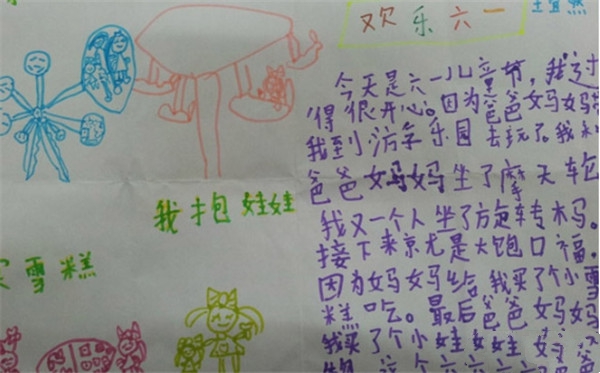 欢乐六一
今天是六一儿童节，我过
得很开心。因为爸爸妈妈带
我到游乐园去玩了。我和
爸爸妈妈坐了摩天轮
我又一个人坐了旋转木马。
接下来就是大饱口福.
因为妈妈给我买了个小雪
糕吃。最后爸爸妈妈
我买了个小娃娃
我抱娃娃
雪糕